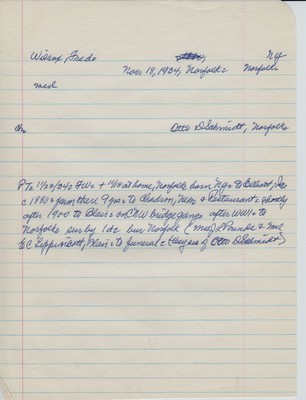 Wilson, Fred NY
Nov 18, 1934, Norfolk Norfolk
med
Otto D Schmidt, Norfolk
PTz 11/22/34 FW + 11/18 at home, Norfolk born NY to
c 1880 farm there 9 yrs to Chadron, Nebr Restaurant shortly
after 1900 to Blair on CNW bridge gang after WWI to
Norfolk sur by 1 d bur Norfolk (med &
E C Lippincott, Blair to funeral Otto D Schmidt)